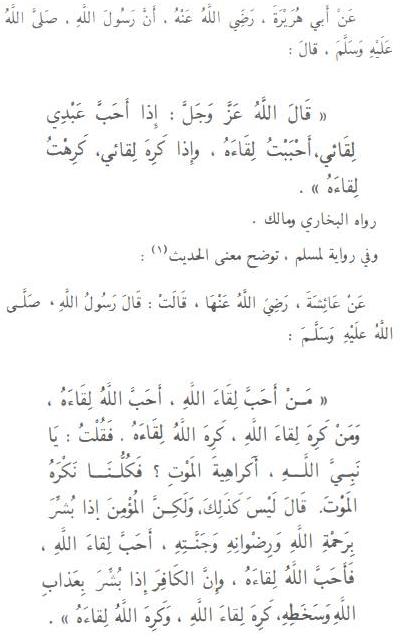 عَنْ أَبِي هُرَيْرَةَ ، رَضِيَ اللَّهُ عَنْهُ ، أَنَّ رَسُولَ اللهِ ، صَلَّى اللَّهُ
عَلَيْهِ وَسَلَّمَ ، قالَ :
« قَالَ اللَّهُ عَزَّ وَجَلَّ : إِذا أَحَبَّ عَبْدِي
لِقَائي، أَحْبَبْتُ لِقَاءَهُ ، وإذا كَرِهَ لِقائي، كَرِهْتُ
لِقاءَهُ » .
رواه البخاري ومالك .
وفي رواية لمسلم ، توضح معنى الحديث(١) :
عَنْ عائِشَةَ ، رَضِيَ اللَّهُ عَنْهَا ، قَالَتْ : قَالَ رَسُولُ اللهِ ، صَلَّى
اللَّهُ عَلَيْهِ وَسَلَّمَ :
« مَنْ أَحَبَّ لِقَاءَ اللهِ ، أَحَبَّ اللَّهُ لِقَاءَهُ ،
وَمَنْ كَرِهَ لِقاءَ اللهِ ، كَرِهَ اللَّهُ لِقَاءَهُ . فَقُلْتُ : يَا
نَبِيَّ اللهِ ، أَكَراهِيةَ المَوْتِ ؟ فَكُلُّنَا نَكْرَهُ
المَوْتَ. قَالَ لَيْسَ كَذَلِكَ، وَلَكِنَّ المُؤْمِنَ إِذا بُشِّرَ
بِرَحْمَةِ اللهِ وَرِضْوانِهِ وَجَنَّتِهِ ، أَحَبَّ لِقاءَ اللهِ ،
فَأَحَبَّ اللَّهُ لِقاءَهُ ، وإِنَّ الكَافِرَ إِذا بُشِّرَ بِعَذابِ
اللهِ وَسَخَطِهِ، كَرِهَ لِقاءَ اللهِ ، وَكَرِهَ اللَّهُ لِقاءَهُ » .